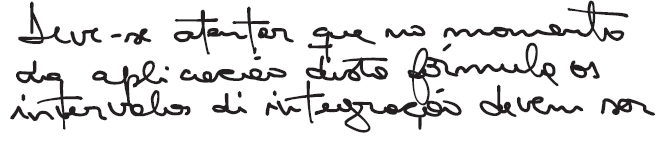 Deve-se atentar que no momento
da aplicação disto fórmula os
intervalos di integração devem ser